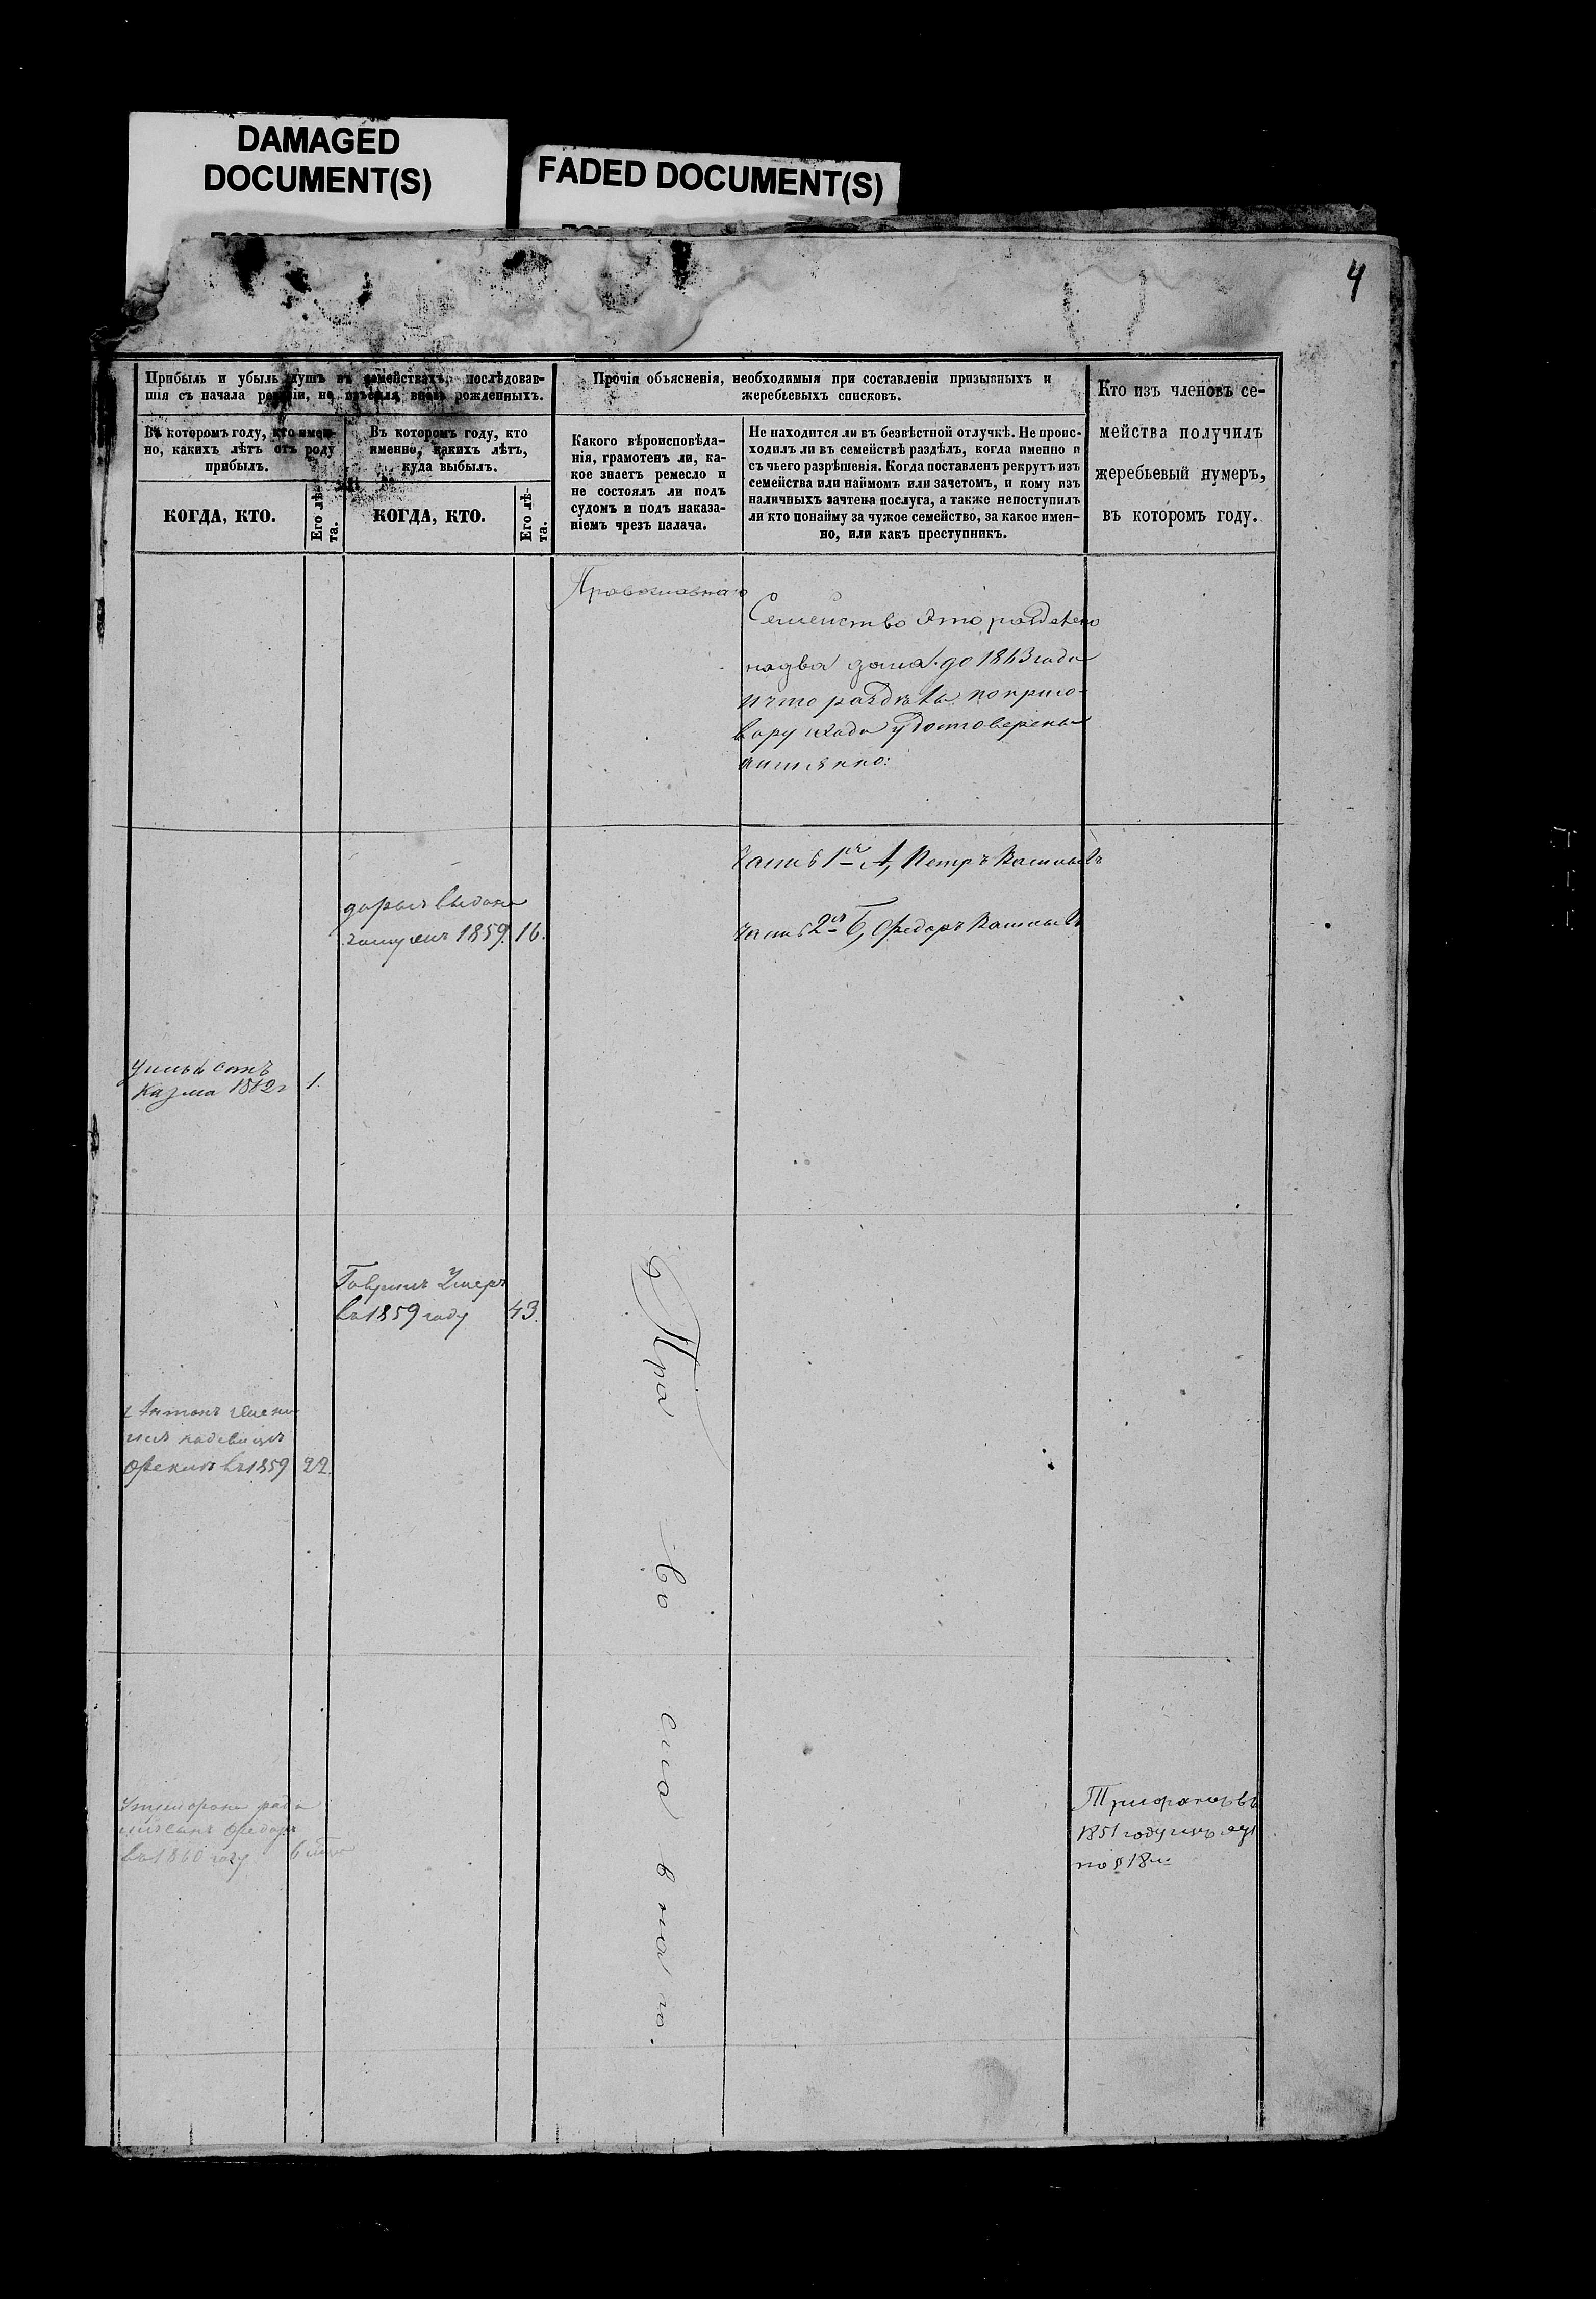 DAMAGED
DOCUMENT(S)
FADED DOCUMENT(S)
4
Прибыль и убыль душъ въ семействахъ, послѣдовав-
шія съ начала ревизіи, не изъемля вновь рожденныхъ.
Прочія объясненія, необходимыя при составленіи призывныхъ и
жеребьевыхъ списковъ.
Кто изъ членовъ се-
мейства получилъ
жеребьевый нумеръ,
въ которомъ году.
Въ которомъ году, кто имен-
но, какихъ лѣтъ отъ роду
прибылъ.
Въ которомъ году, кто
именно, какихъ лѣтъ,
куда выбылъ.
Какого вѣроисповѣда-
нія, грамотенъ ли, ка-
кое знаетъ ремесло и
не состоялъ ли подъ
судомъ и подъ наказа-
ніемъ чрезъ палача.
Не находится ли въ безвѣстной отлучкѣ. Не проис-
ходилъ ли въ семействѣ раздѣлъ, когда именно и
съ чьего разрѣшенія. Когда поставленъ рекрутъ изъ
семейства или наймомъ или зачетомъ, и кому изъ
наличныхъ зачтена послуга, а также непоступилъ
ли кто понайму за чужое семейство, за какое имен-
но, или какъ преступникъ.
КОГДА, КТО.
Его лѣ-
та.
КОГДА, КТО.
Его лѣ-
та.
Православнаго
Семейство это разделено
на два дома до 1863 года
и что раздѣлы по приго-
вору схода удостоверены
Часть 1я А, Петръ Васильевъ
дарья выдана
замужъ 1859. 16.
Часть 2я Б, Федоръ Васильевъ
сынъ
Казма 1862 г 1.
Гаврилъ Умеръ
въ 1859 году 43.
Антонъ
въ 1859 22.
Православнаго.
сынъ Федоръ
въ 1860 году 6
Трифонъ въ
1851 году
по § 18